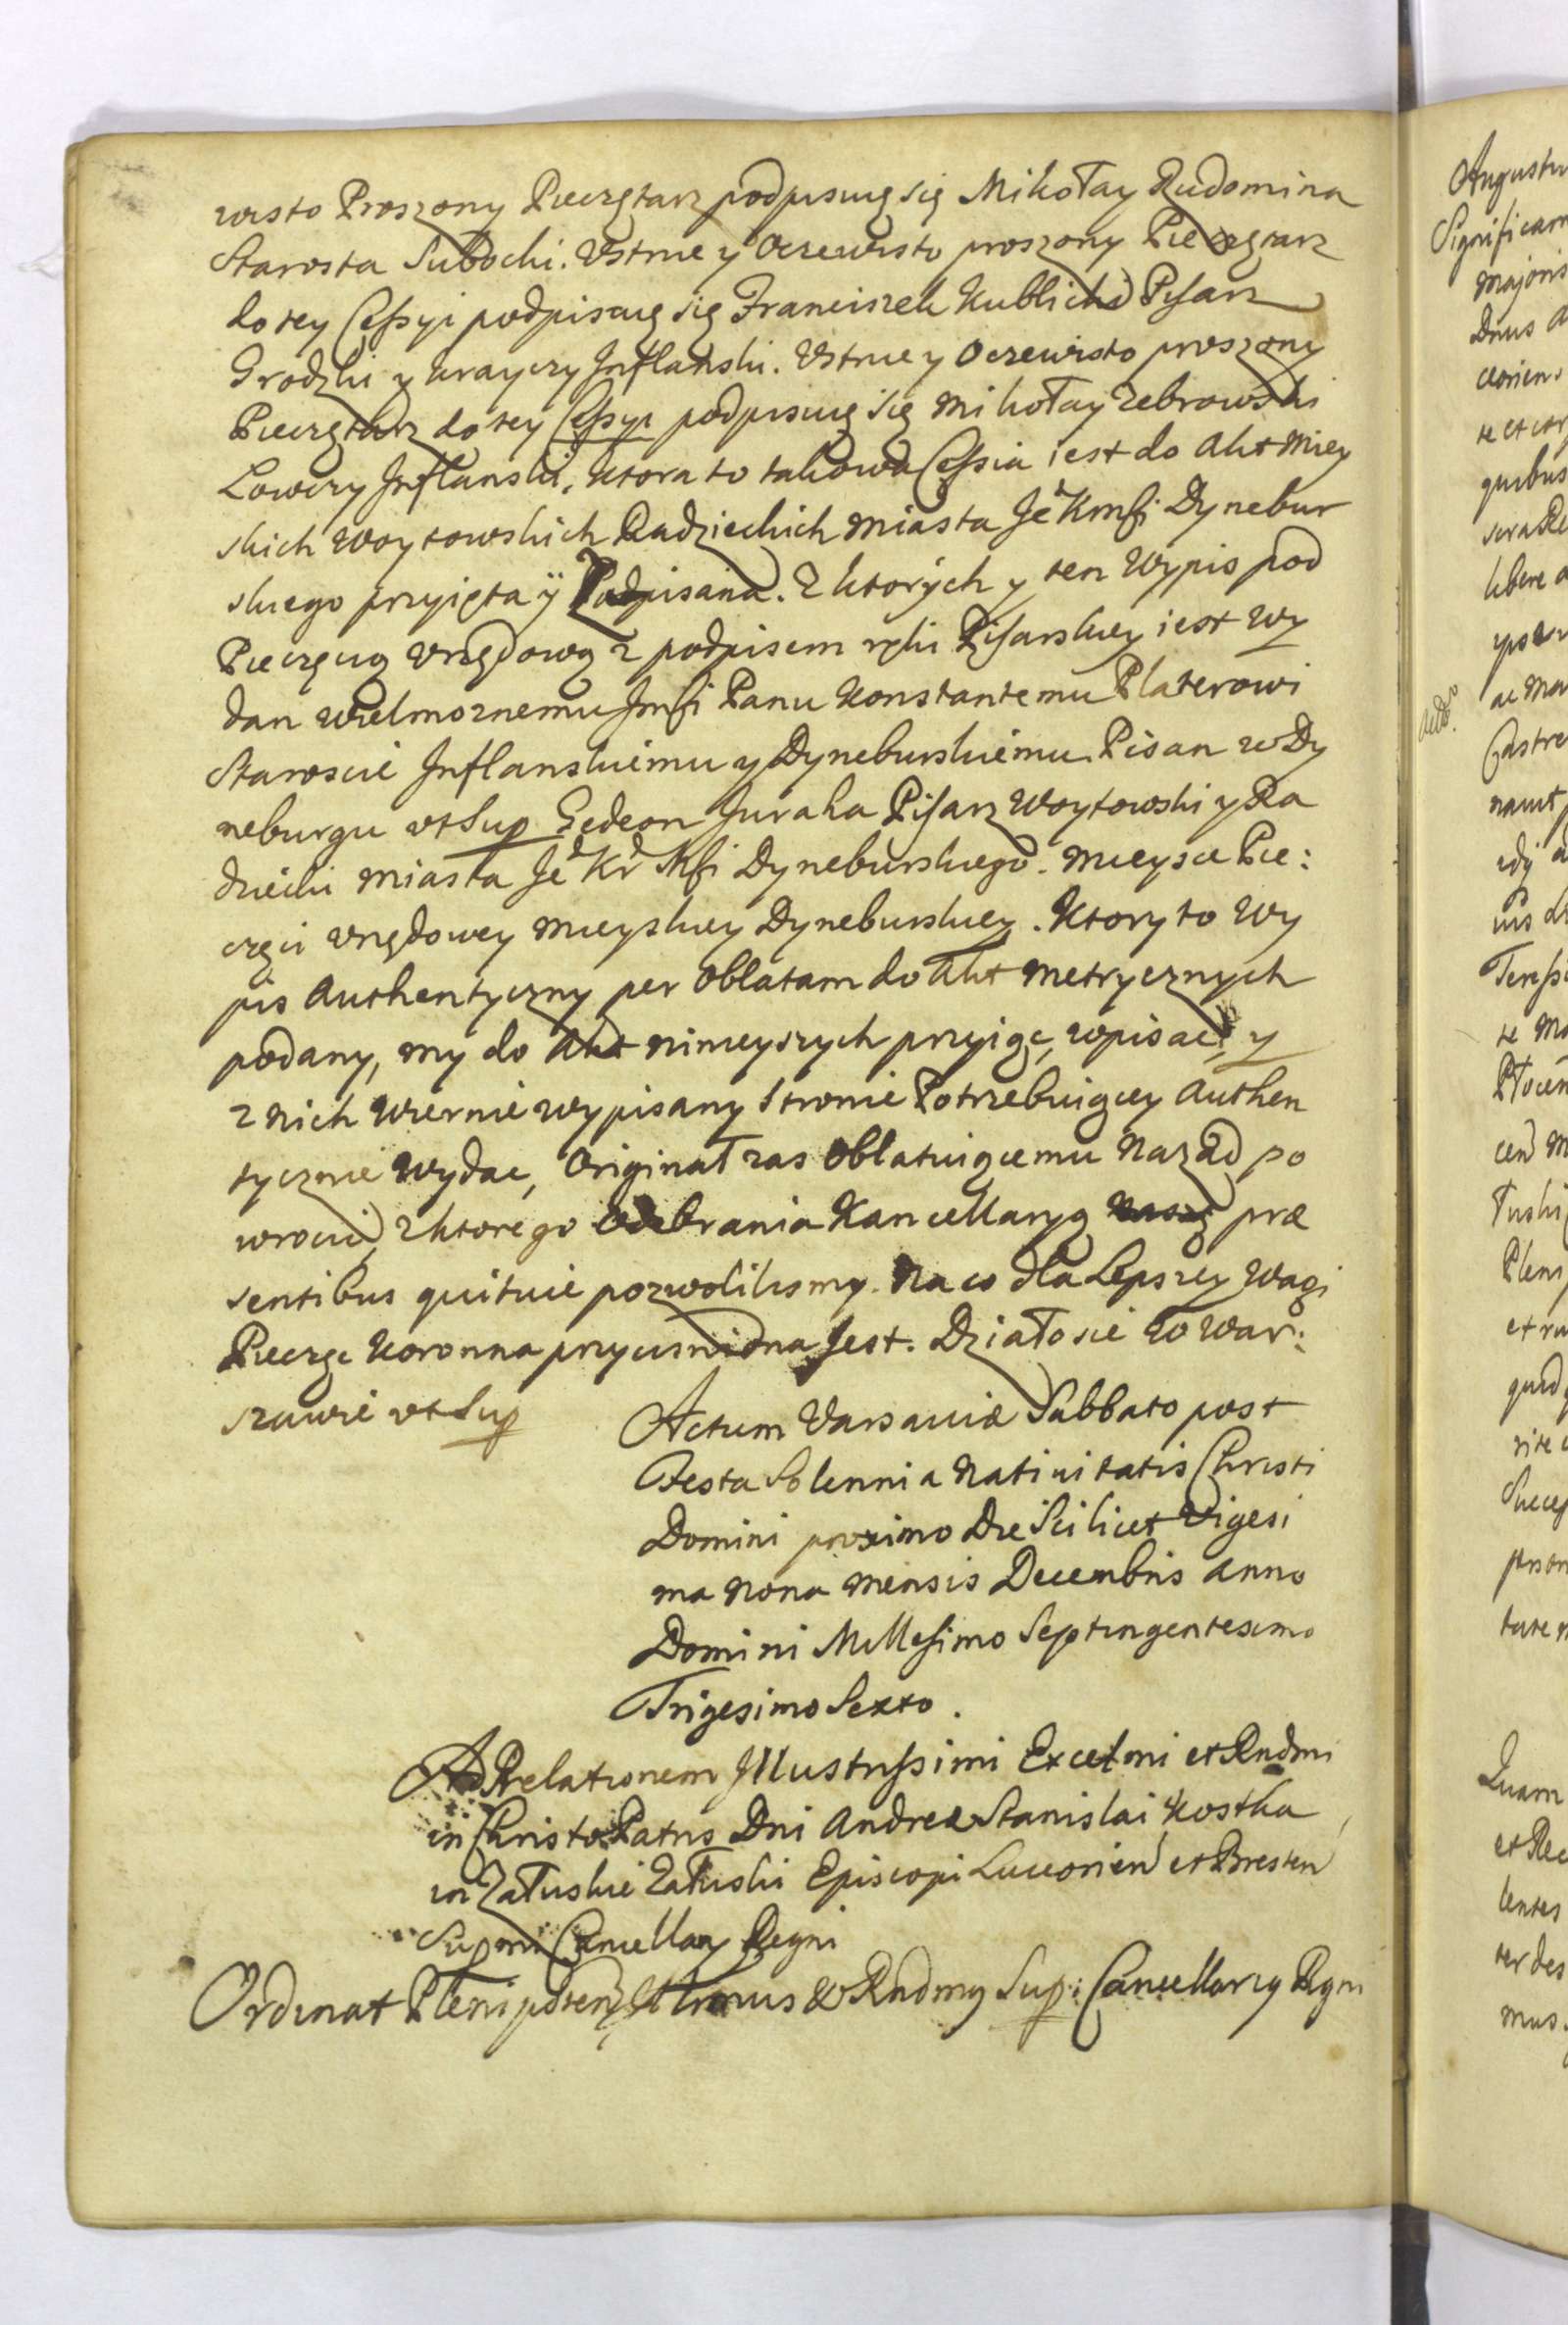 wisto Proszony Pieczętarz podpisuię się Mikołay Rudomina
Starosta Subocki. Vstnie y Oczewisto proszony Pieczętarz
do tey Cessyi podpisuię się Franciszek Kublicki Pisarz
Grodzki y Krayczy Inflański. Vstnie y Oczewisto proszony
Pieczętarz do tey Cessyi podpisuię się Mikołay Zebrowski
Lowczy Inflanski, Ktora to takowa Cessia iest do Akt Miey
skich Woytowskich Radzieckich Miasta Je Kmsi Dynebur
skiego przyięta y Podpisana. Z ktorych y ten Wypis pod
Pieczęcią Vrzędową z podpisem ręki Pisarskiey iest Wy
dan Wielmoznemu Jmsi Panu Konstantemu Platerowi
Staroscie Inflanskiemu y Dyneburskiemu. Pisan w Dy
neburgu vt Sup Gedeon Juraha Pisarz Woytowski y Ra
dziecki Miasta Je Kr Msi Dyneburskiego. Mieysce Pie:
częci Vrzędowey Mieyskiey Dyneburskiey. Ktory to Wy
pis Authentyczny per Oblatam do Akt Metrycznych
podany, my do Akt Ninieyszych przyiąc, wpisac, y
z Nich Wiernie wypisany Stronie Potrzebuiącey Authen
tycznie Wydac, Originał zas Oblatuiącemu Nazad po
wrocic, z ktorego Odebrania Kancellaryą Naszą præ
sentibus quituie pozwolilismy. Na co dla Lepszey Wagi
Pieczęc Koronna przycisniona Jest. Działo sie w War:
szawie vt Sup
Actum Varsaviæ Sabbato post
Festa Solennia Nativitatis Christi
Domini proximo Die Scilicet Vigesi
ma Nona Mensis Decembris Anno
Domini Millesimo Septingentesimo
Trigesimo Sexto.
Ad Relationem Illustrissimi Excelmi et Rndmi
in Christo Patris Dni Andreæ Stanislai Kostka
in Załuskie Załuski Episcopi Luceorien et Bresten
Supmi Cancellary Regni
Ordinat Plenipoten Illmus & Rndmq Sup: Cancellariq Rgni
Augustu
Significam
Majoris
Dnus
quibus
libere a
ac
nant
Plens
quid
rite
Succes
Quam
et Rec
lentes
ter des
mus.